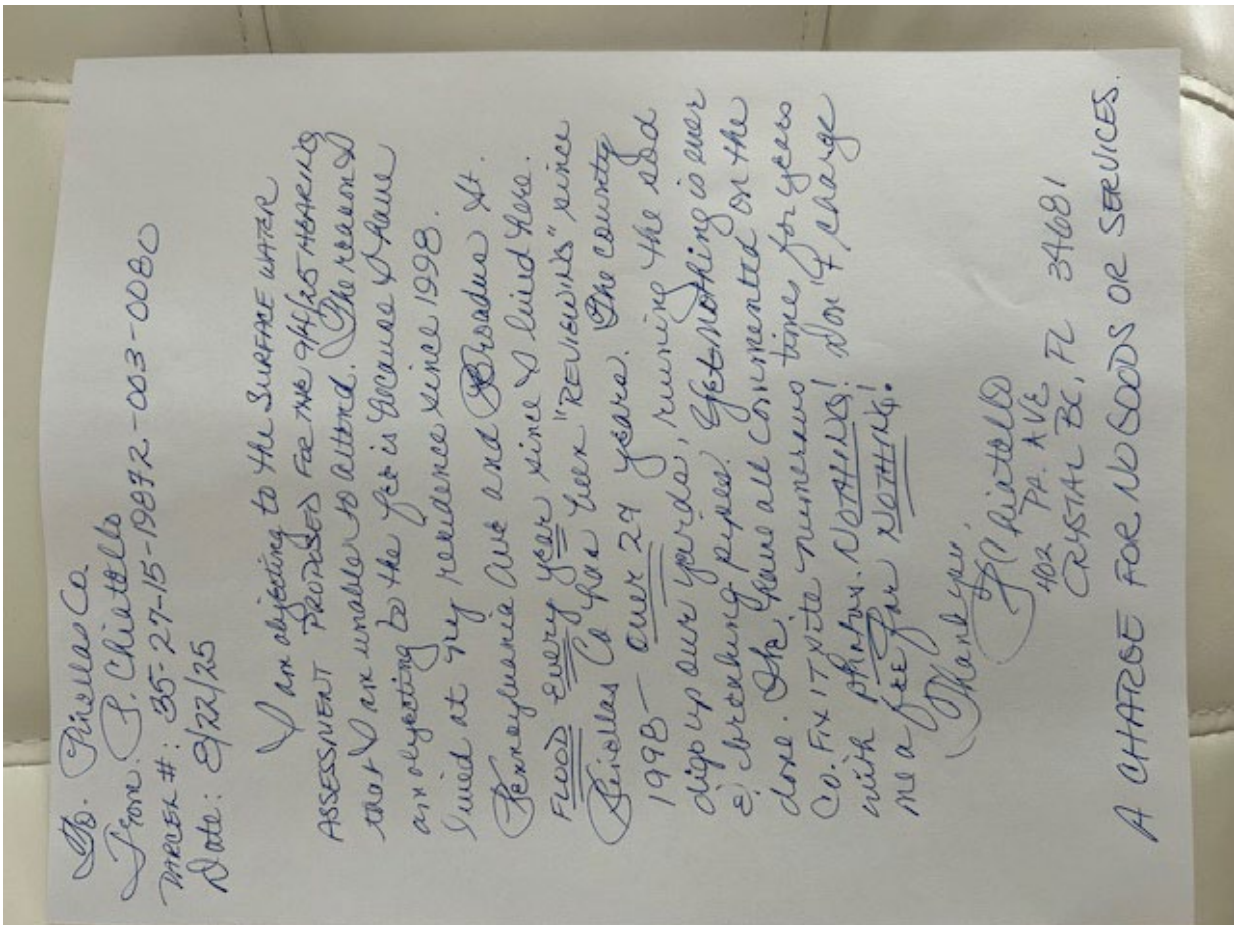 To: Pinellas Co.
From: P. Chiatello
PARCEL #: 35-27-15-19872-003-0080
Date: 8/22/25
I am objecting to the SURFACE WATER
ASSESSMENT PROPOSED FOR THE 9/4/25 HEARING
that I am unable to attend. The reason I
am objecting to the fee is because I have
lived at my residence since 1998.
Pennsylvania Ave and Broadus St.
FLOOD every year since I lived here.
Pinellas Co has been "REVIEWING" since
1998 - over 27 years. The county
digs up our yards, ruining the sod
& breaking pipes. Yet nothing is ever
done. We have all commented on the
Co. FIX IT site numerous times for years
with photos. NOTHING! Don't charge
me a fee for NOTHING!
Thank you,
P Chiatello
402 PA. AVE
CRYSTAL BC, FL 34681
A CHARGE FOR NO GOODS OR SERVICES.